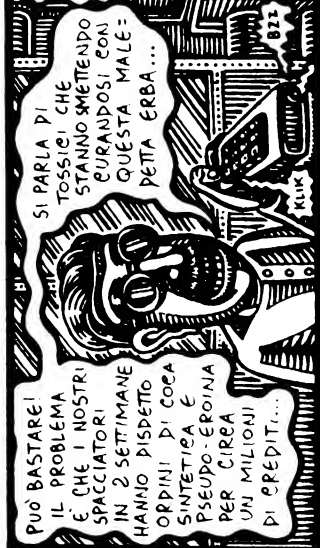 PUÒ BASTARE!
IL PROBLEMA
È CHE I NOSTRI
SPACCIATORI
IN 2 SETTIMANE
HANNO DISDETTO
ORDINI DI COCA
SINTETICA E
PSEUDO-EROINA
PER CIRCA
UN MILIONI
DI CREDITI...
SI PARLA DI
TOSSICI CHE
STANNO SMETTENDO
CURANDOSI CON
QUESTA MALE=
DETTA ERBA...
KLIK
BZZ